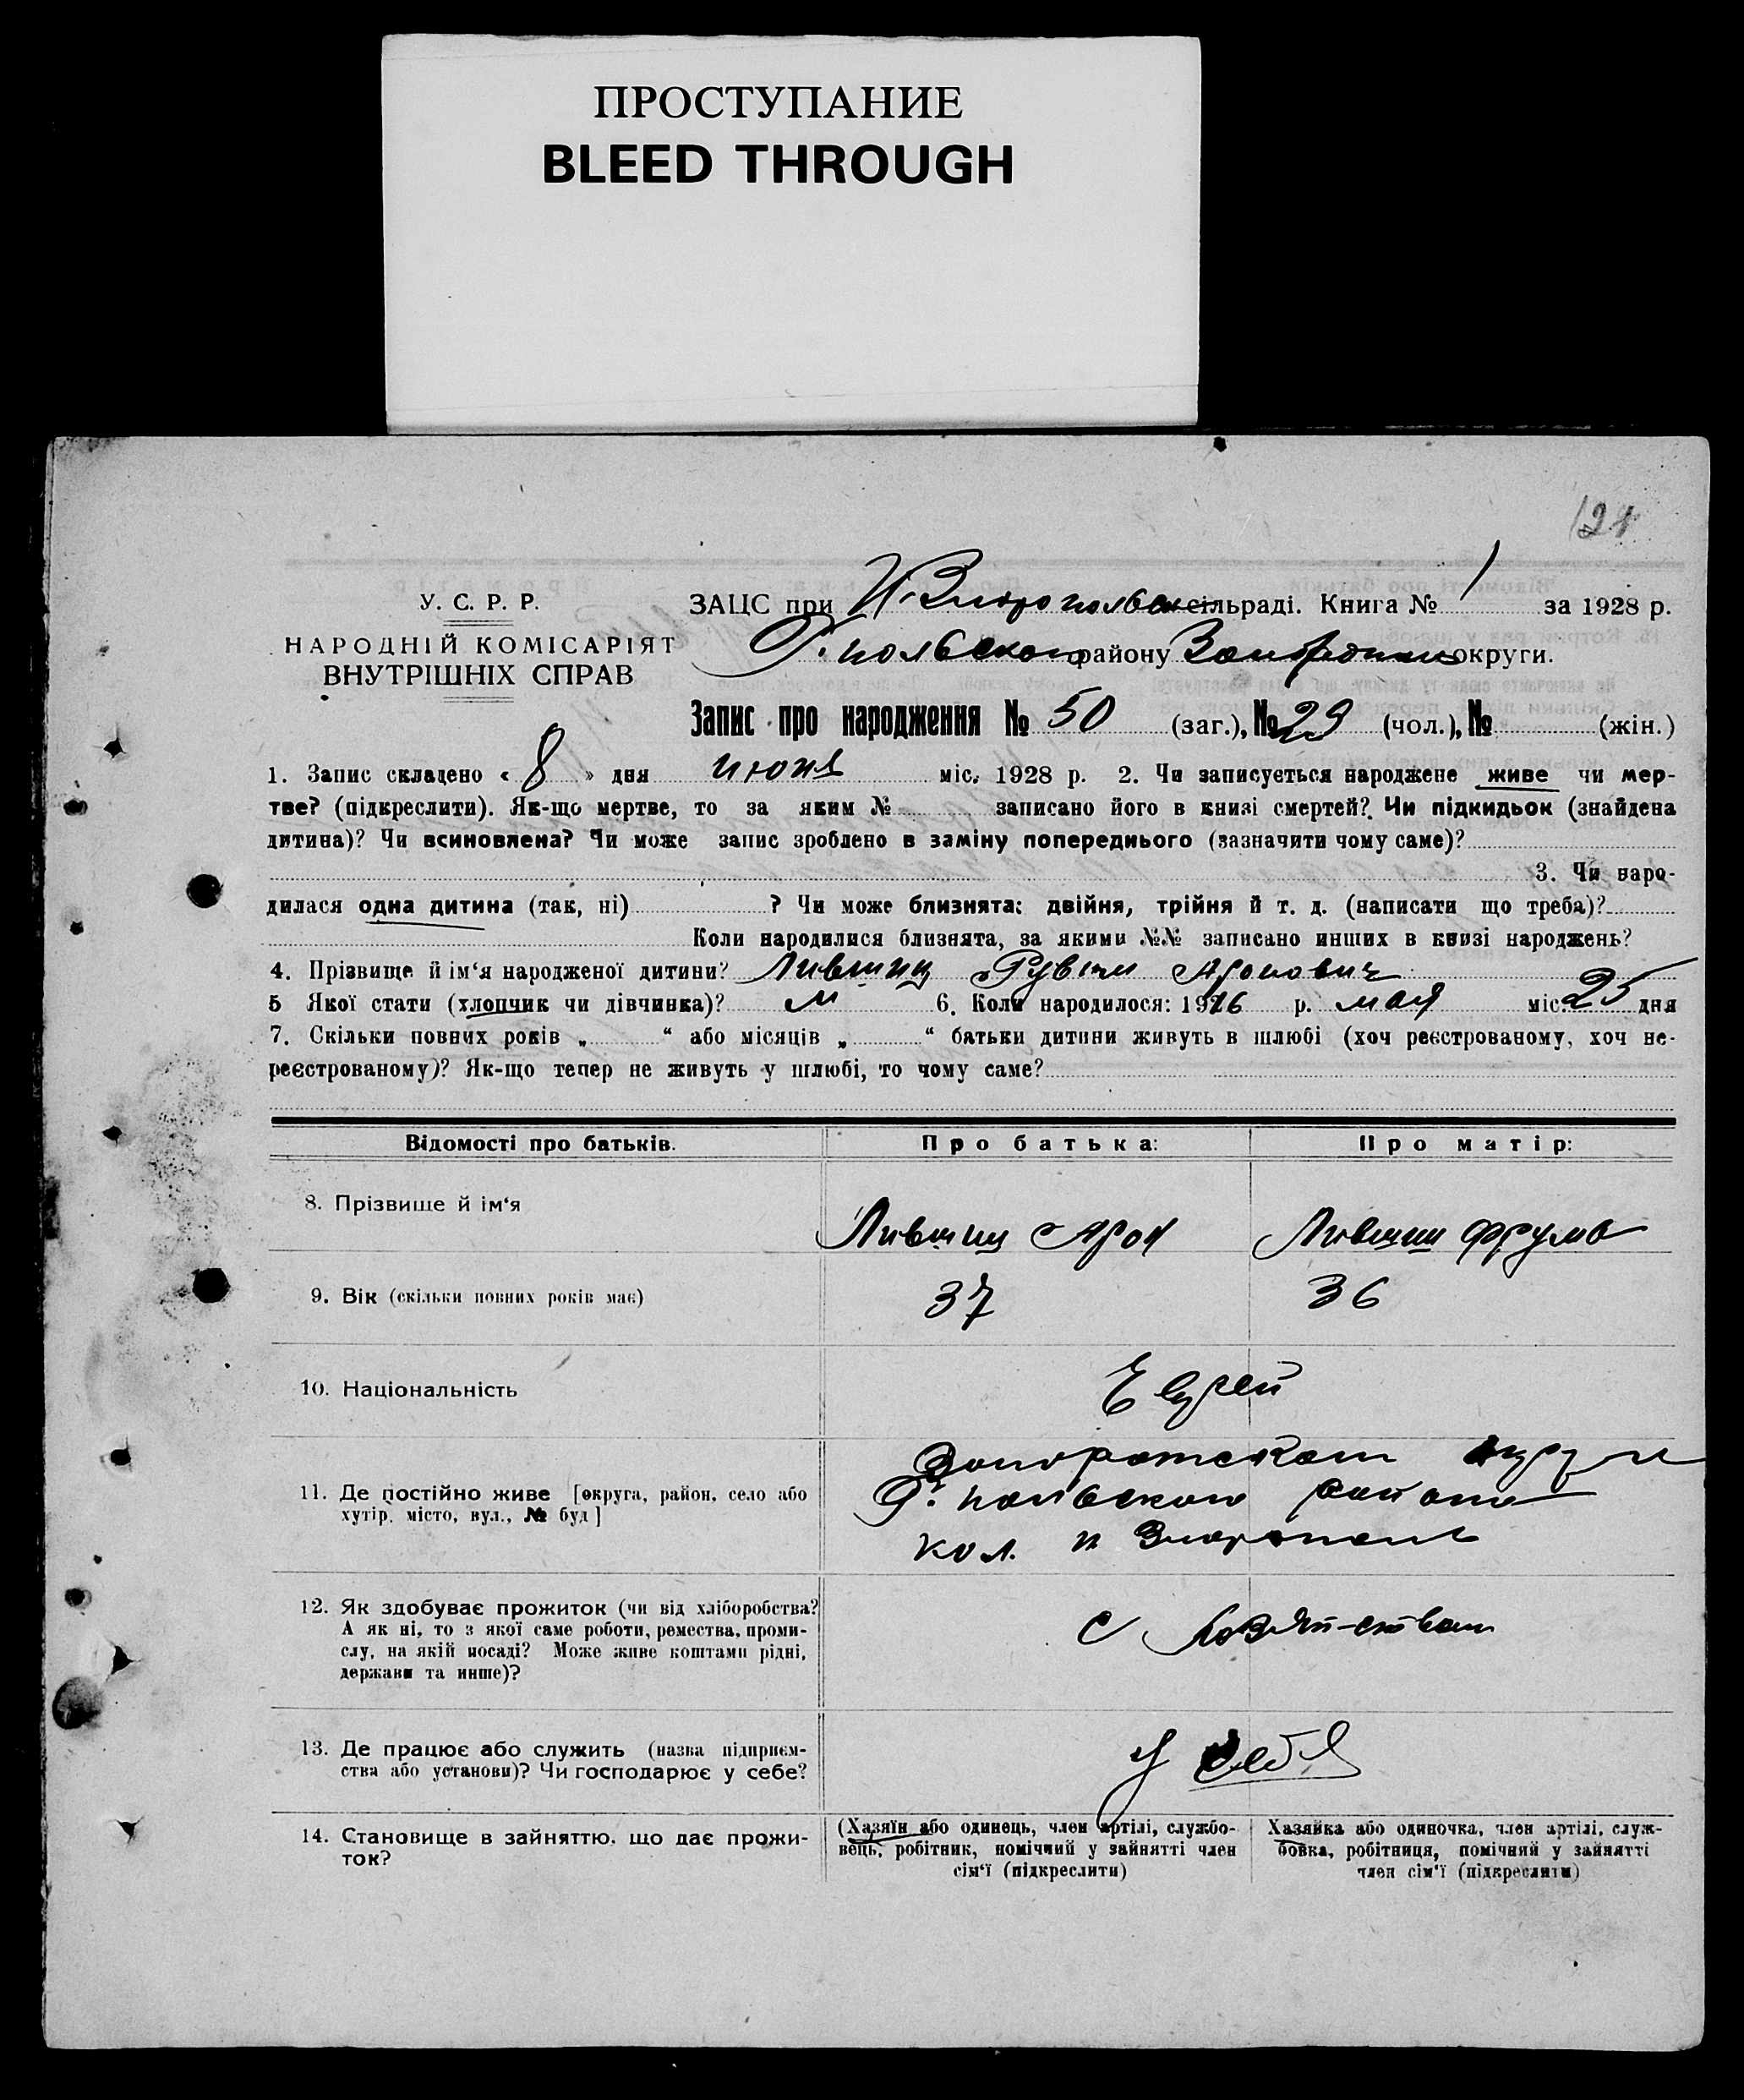 ПРОСТУПАНИЕ
BLEED THROUGH
124
У. С. Р. Р.
НАРОДНІЙ КОМІСАРІЯТ
ВНУТРІШНІХ СПРАВ
ЗАЦС при Н. Златопольск сільраді. Книга № 1 за 1928 р.
Г. польского району округи.
Запис про народження № 50 (заг.), № 29 (чол.), № (жін.)
1. Запис складено « 8 » дня июня міс. 1928 р. 2. Чи записується народжене живе чи мер-
тве? (підкреслити). Як-що мертве, то за яким № записано його в книзі смертей? Чи підкидьок (знайдена
дитина)? Чи всиновлена? Чи може запис зроблено в заміну попереднього (зазначити чому саме)?
3. Чи наро-
дилася одна дитина (так, ні) ? Чи може близнята: двійня, трійня й т. д. (написати що треба)?
Коли народилися близнята, за якими №№ записано инших в книзі народжень?
4. Прізвище й ім‘я народженої дитини? Лившиц Рувим Аронович
5 Якої стати (хлопчик чи дівчинка)? м 6. Коли народилося: 1926 р. мая міс. 25 дня
7. Скільки повних років „ “ або місяців „ “ батьки дитини живуть в шлюбі (хоч реєстрованому, хоч не-
реєстрованому)? Як-що тепер не живуть у шлюбі, то чому саме?
Відомості про батьків. Про батька: Про матір:
8. Прізвище й ім‘я Лившиц Арон Лившиц Фрума
9. Вік (скільки повних років має) 37 36
10. Національність Еврей
11. Де постійно живе [округа, район, село або
хутір, місто, вул., № буд]
Запорожской округи
Г. польского района
кол. н Златополь
12. Як здобуває прожиток (чи від хліборобства?
А як ні, то з якої саме роботи, ремества, проми-
слу, на якій посаді? Може живе коштами рідні,
держави та инше)?
С
13. Де працює або служить (назва підприєм-
ства або установи)? Чи господарює у себе?
У себя
14. Становище в зайняттю, що дає прожи-
ток?
(Хазяїн або одинець, член артілі, службо-
вець, робітник, помічний у зайнятті член
сім‘ї (підкреслити)
Хазяйка або одиночка, член артілі, служ-
бовка, робітниця, помічний у зайнятті
член сім‘ї (підкреслити)